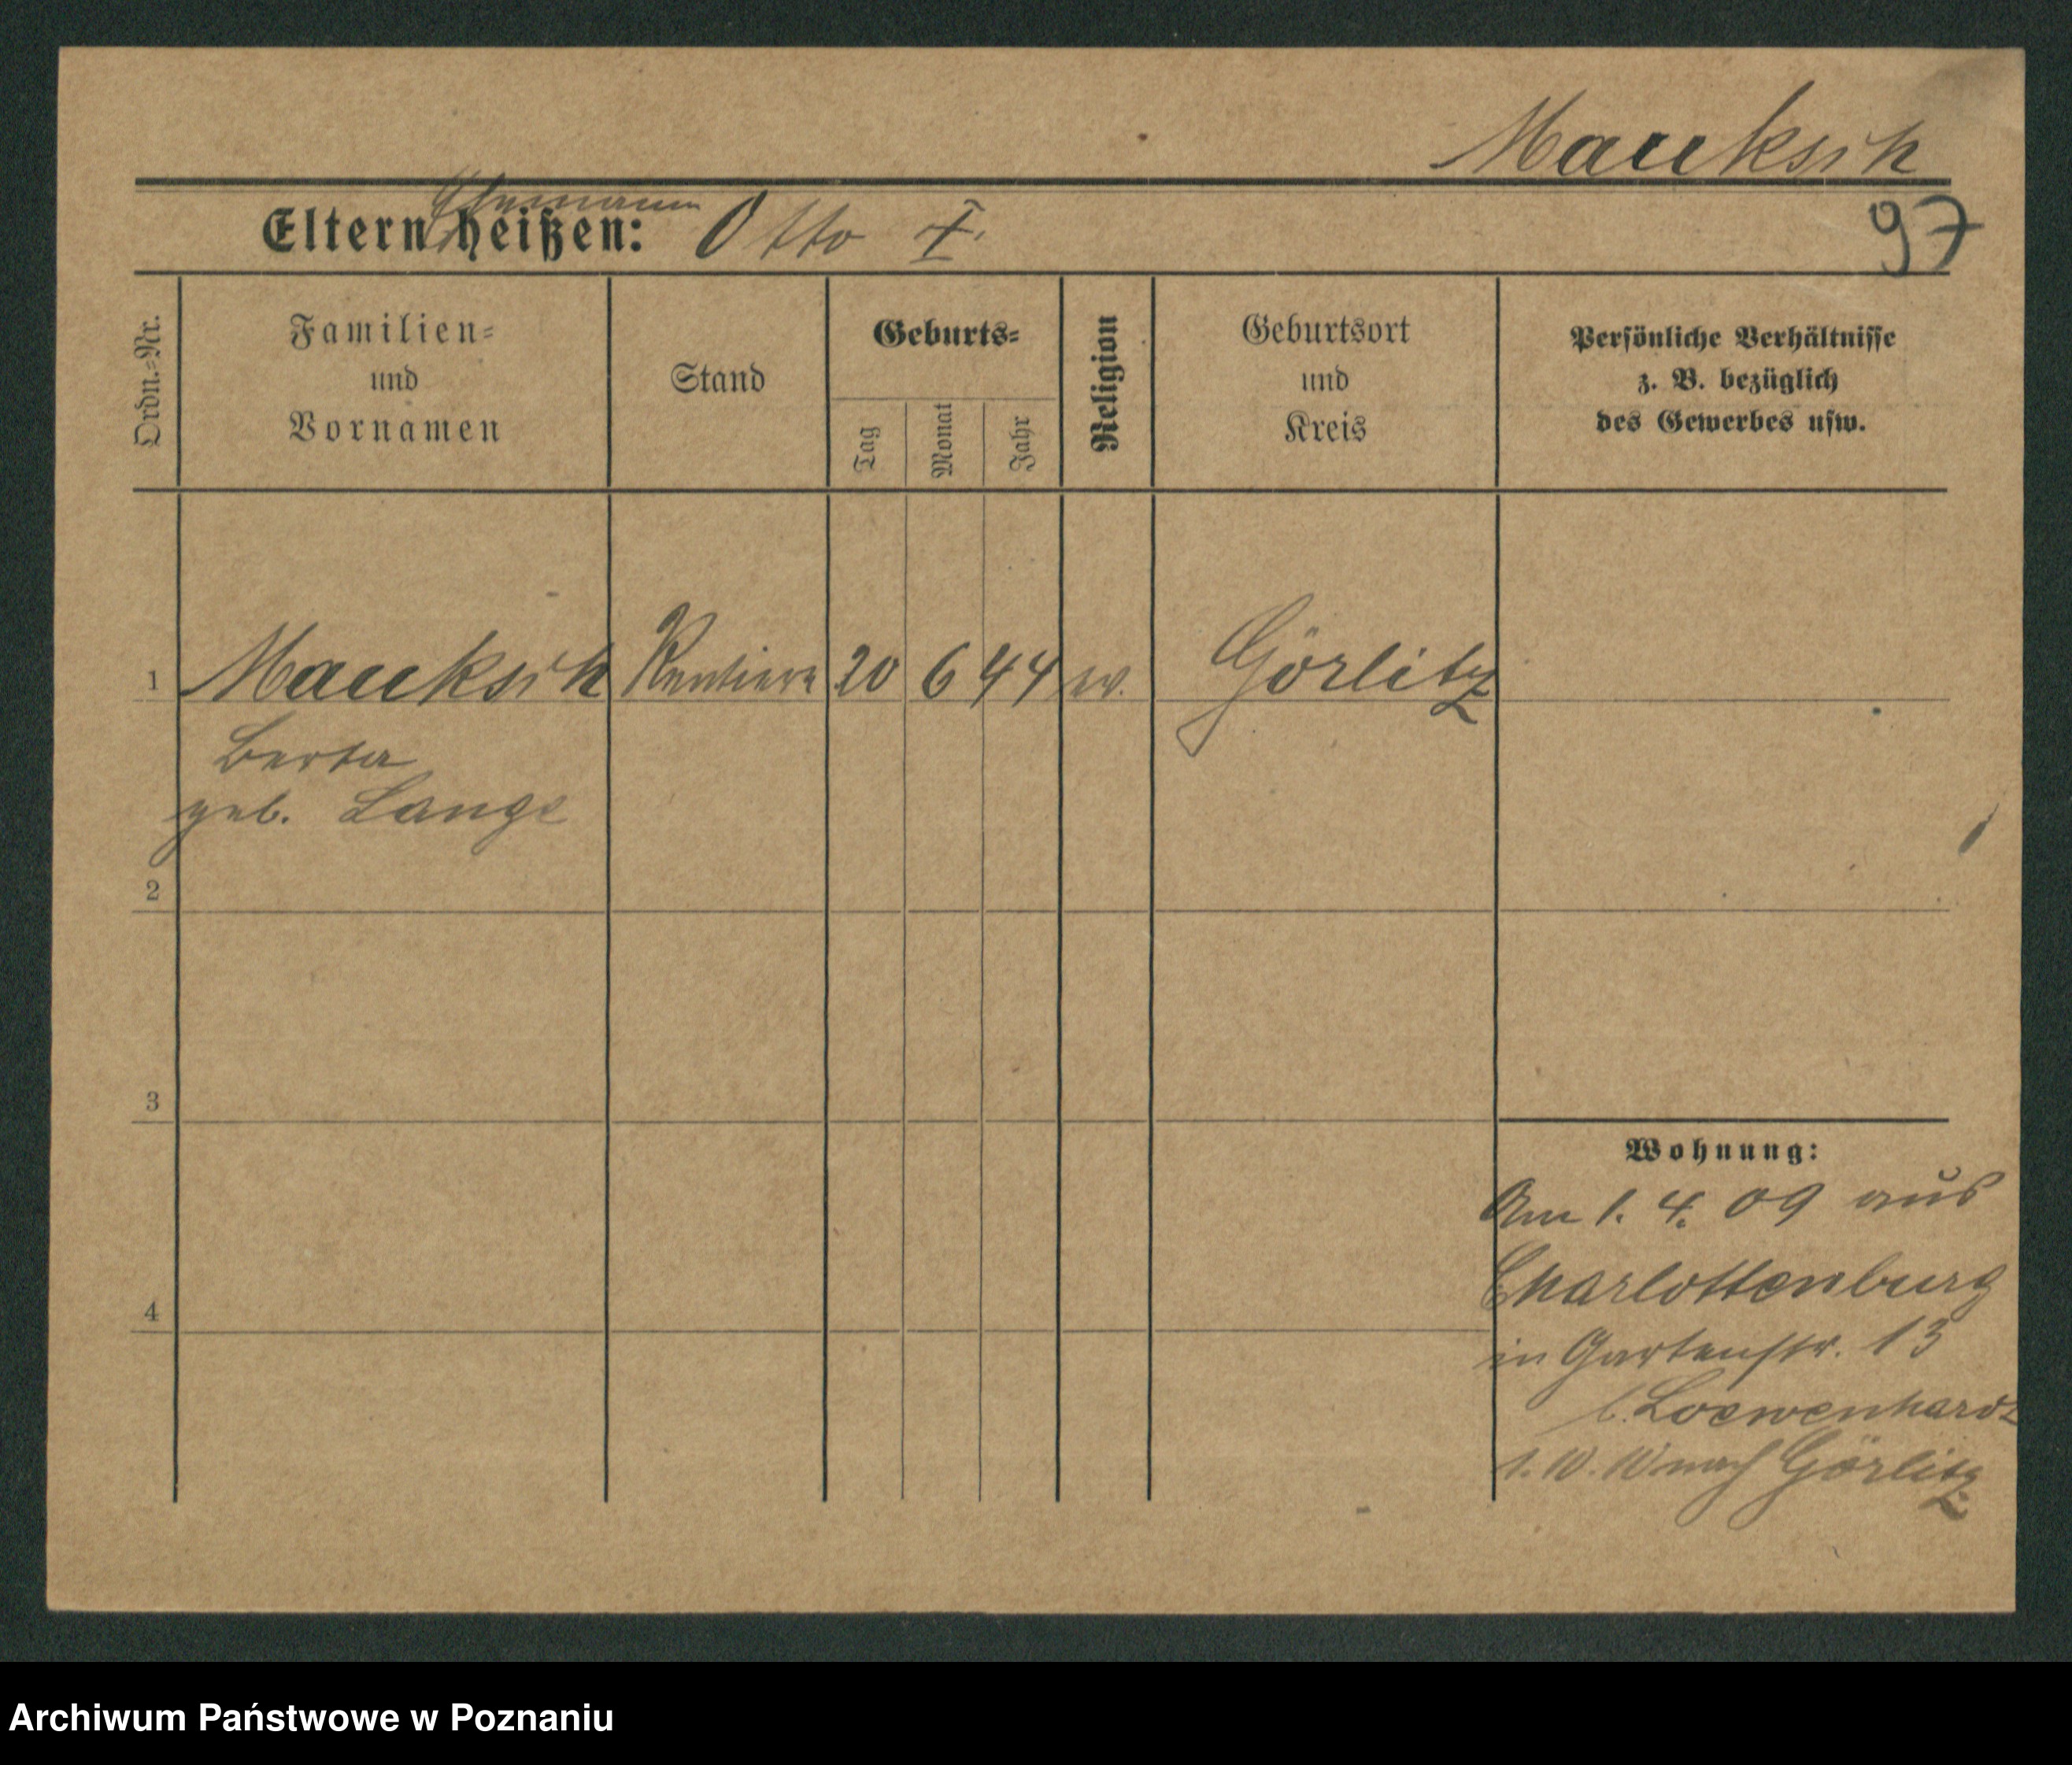 Mauksch
Ehemann
Eltern heißen: Otto †.
97
Ordn.-Nr.
Familien-
und
Vornamen
Stand
Geburts-
Tag
Monat
Jahr
Religion
Geburtsort
und
Kreis
Persönliche Verhältnisse
z. B. bezüglich
des Gewerbes usw.
1 Mauksch Rentiere 20 6 44 ev. Görlitz
Berta
geb. Lange
2
3
Wohnung:
Am 1. 4. 09 aus
Charlottenburg
4
in Gartenstr. 13
b. Loewenhardt
1. 10. 10 nach Görlitz
Archiwum Państwowe w Poznaniu